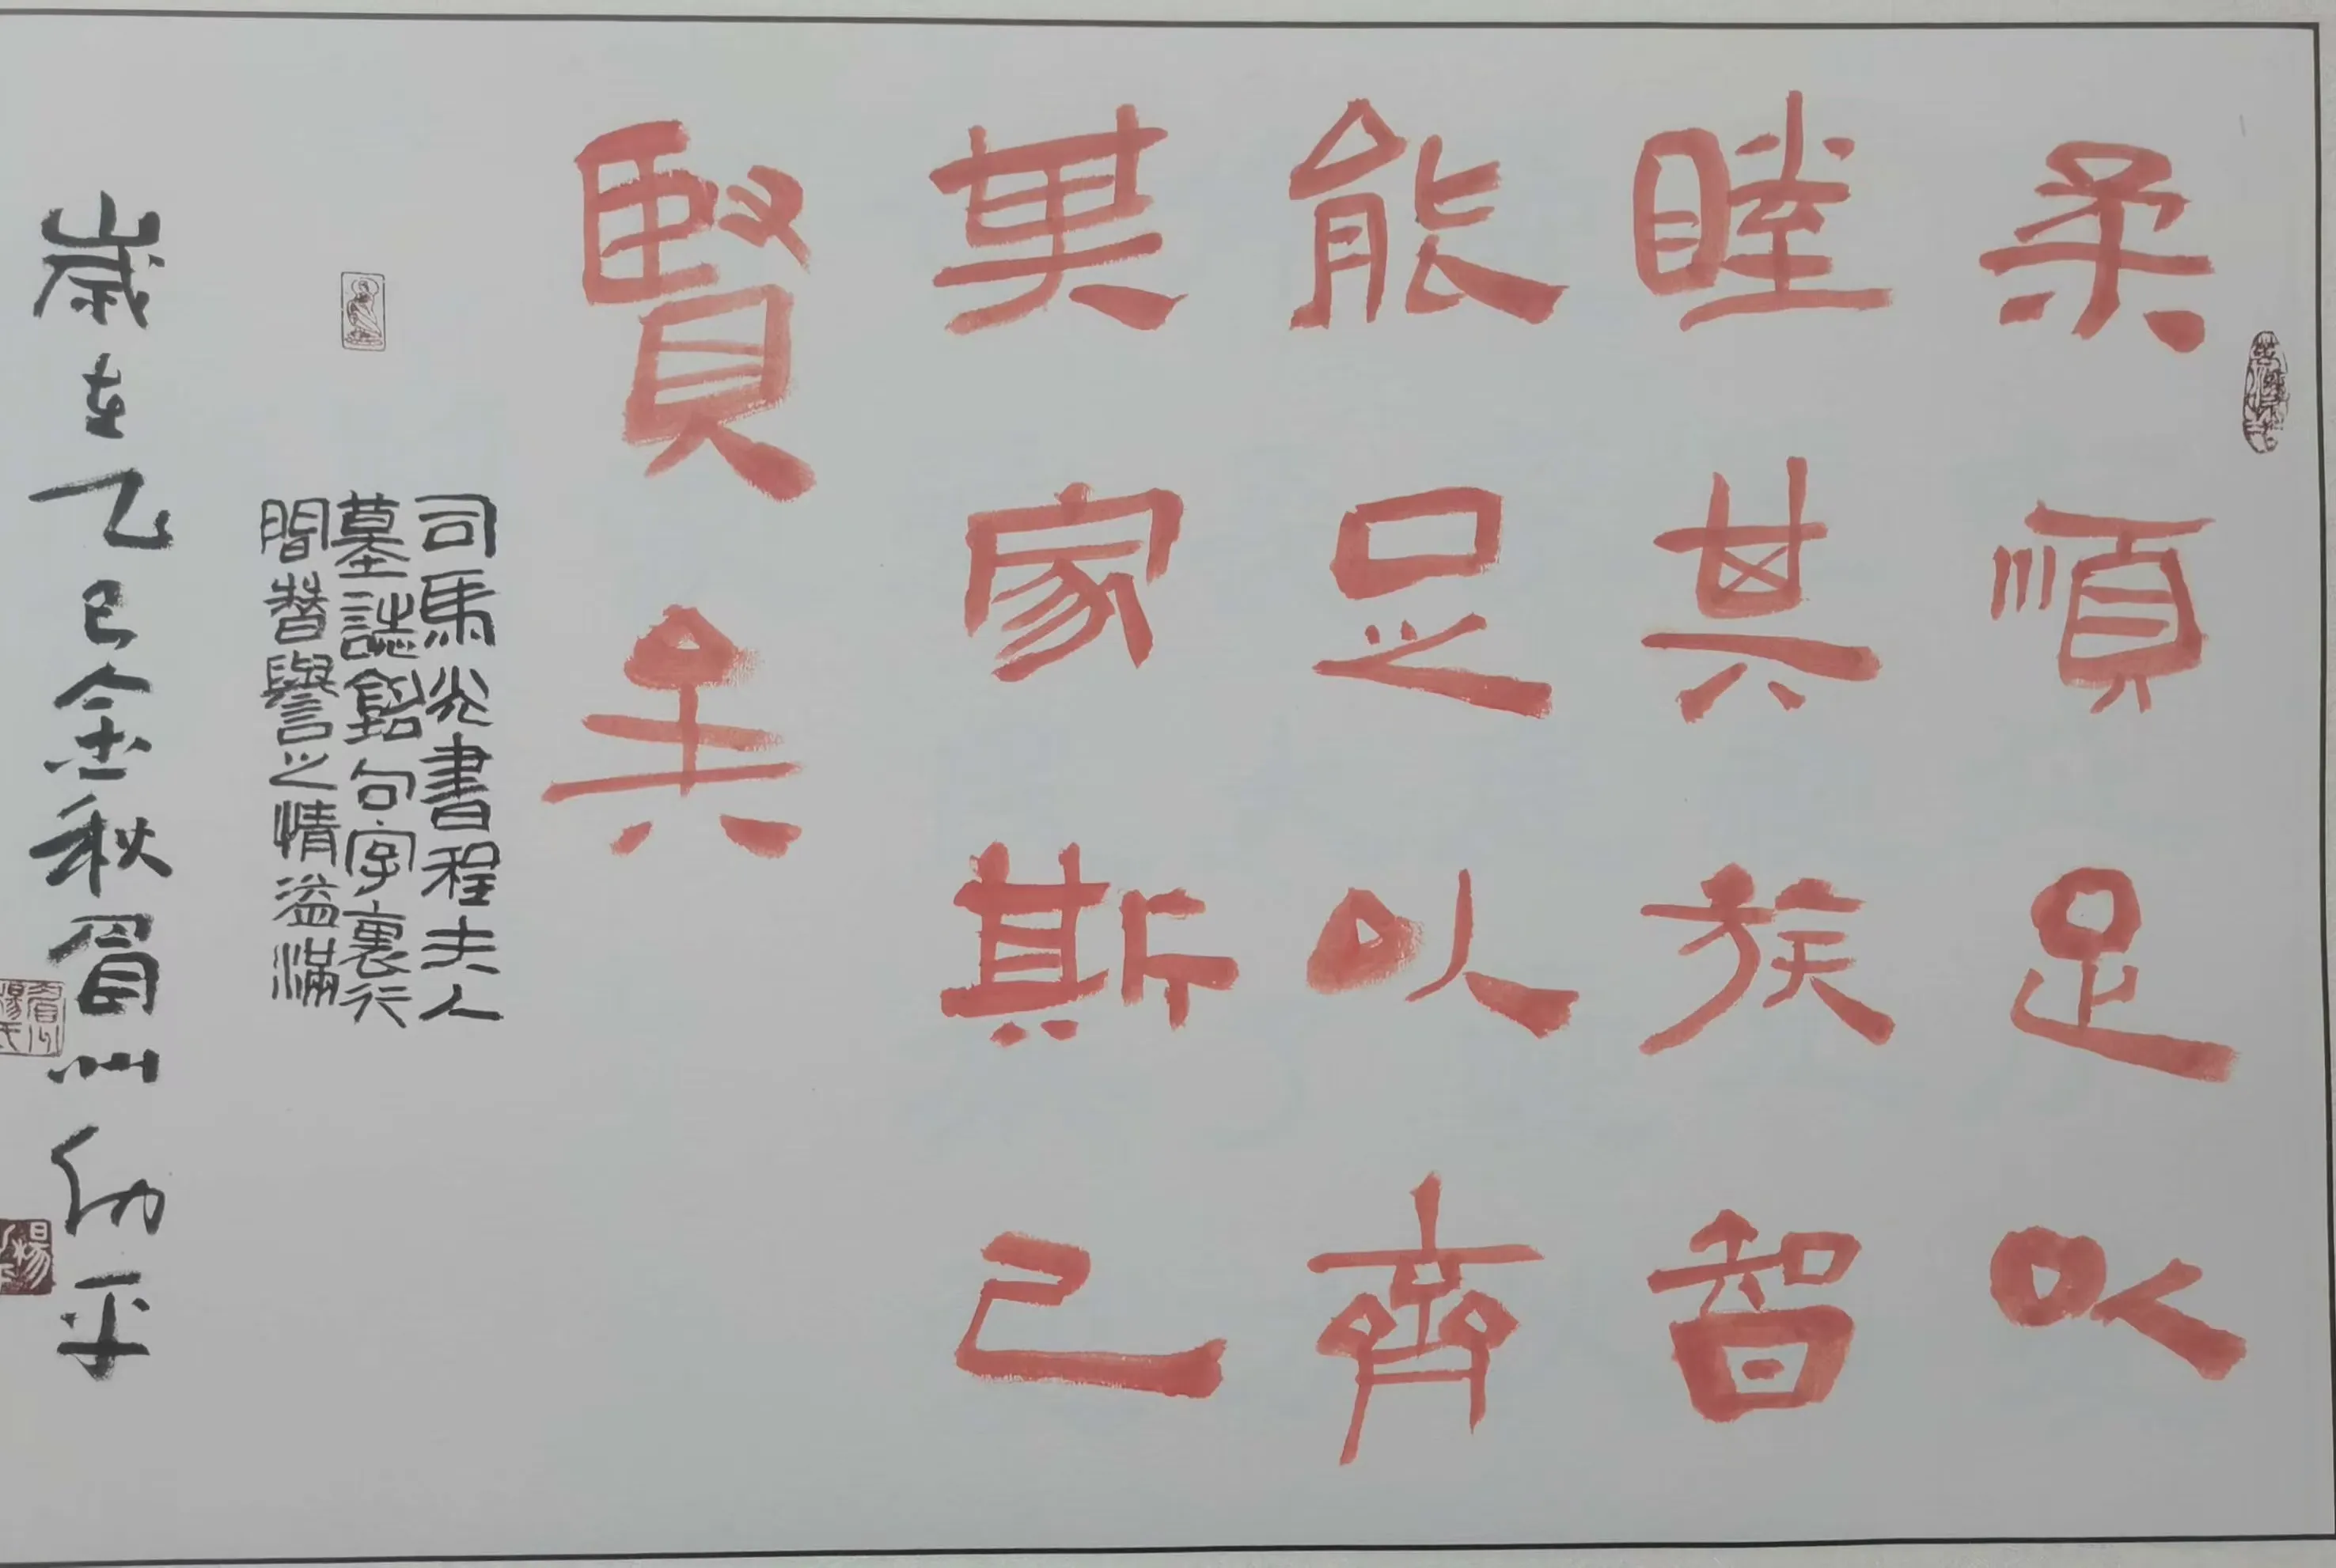 柔順足以
睦其族智
能足以齊
其家斯已
賢矣
司馬光書程夫人
墓誌銘句字裏行
間替譽之情溢滿
歲在乙巳金秋眉州幼平